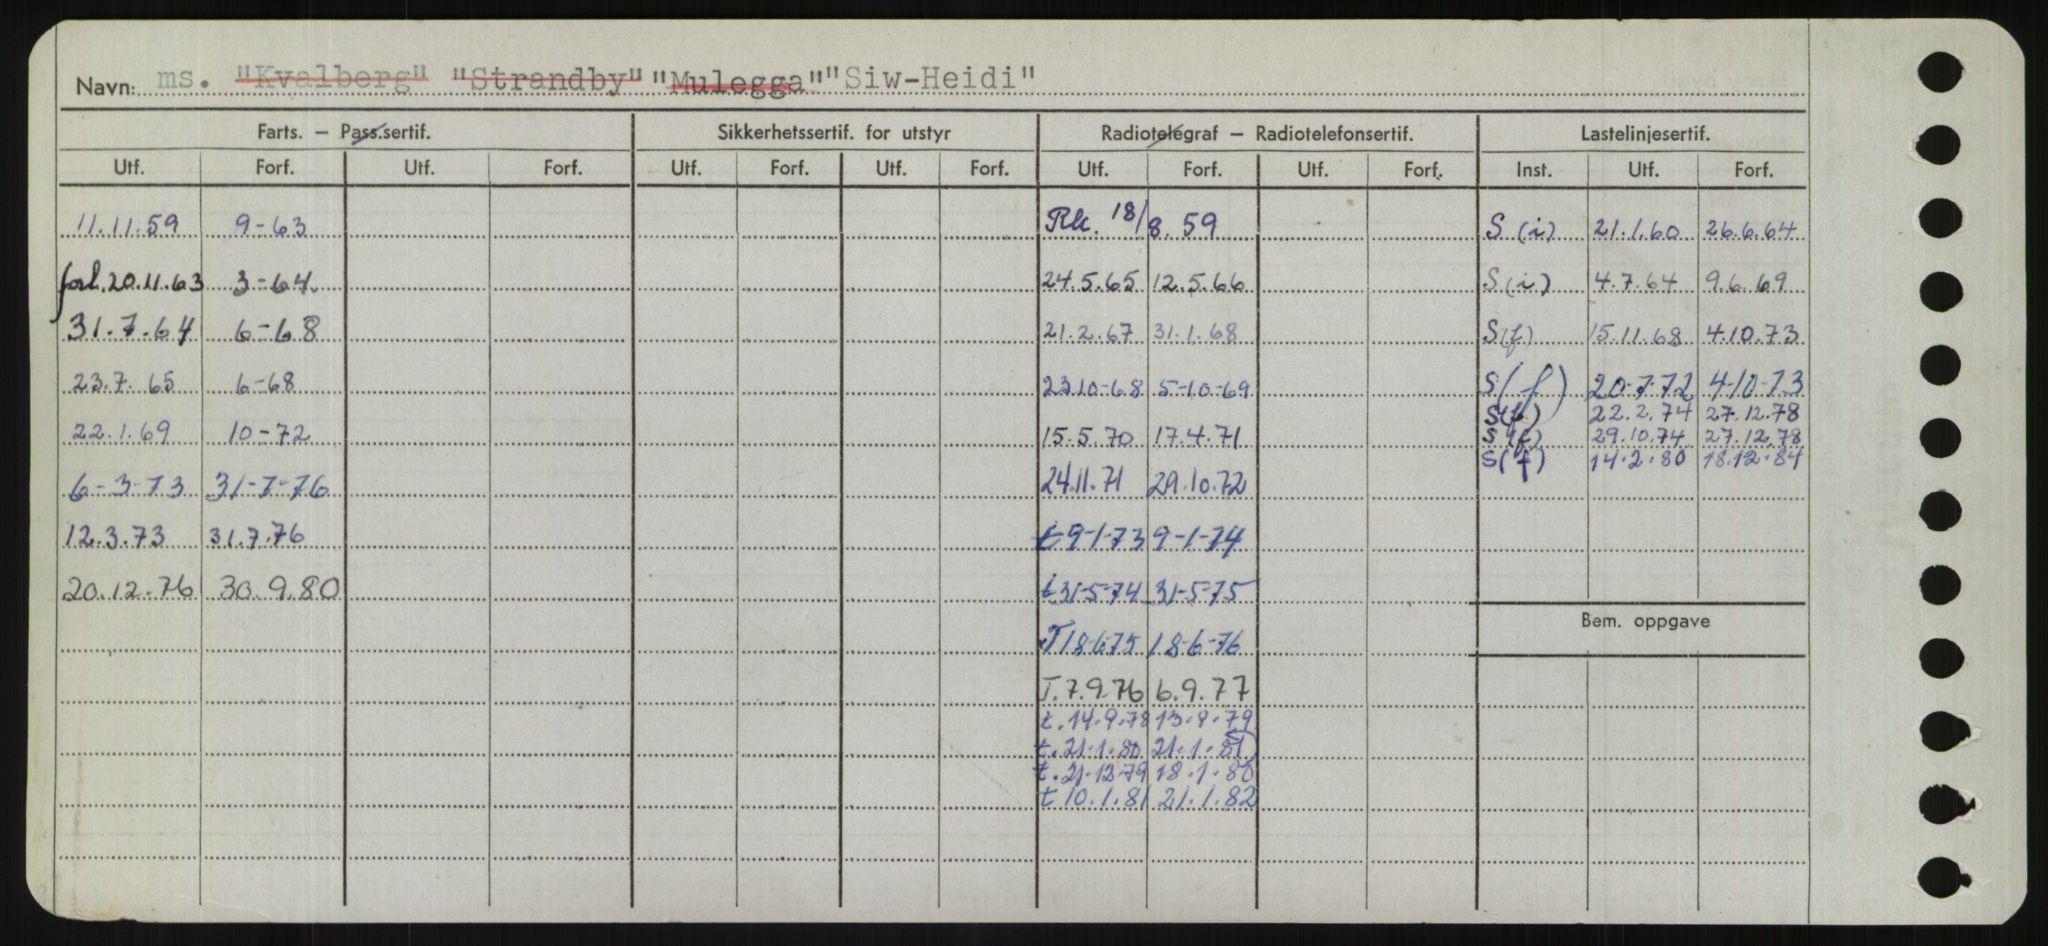 Navn: ms. "Kvalberg" "Strandby" "Mulegga" "Siw-Heidi"
Farts. – Pass.sertif. Sikkerhetssertif. for utstyr Radiotelegraf – Radiotelefonsertif. Lastelinjesertif.
Utf. Forf. Utf. Forf. Utf. Forf. Utf. Forf. Utf. Forf. Utf. Forf. Inst. Utf. Forf.
11.11.59 9-63 Rk. 18/8.59 S (i) 21.1.60 26.6.64
forl. 20.11.63 3-64. 24.5.65 12.5.66 S (i) 4.7.64 9.6.69
31.7.64 6-68 21.2.67 31.1.68 S(f) 15.11.68 4.10.73
23.7.65 6-68 23.10-68 5-10-69 S(f) 20-7-72 4-10-73
S(f) 22.2.74 27.12.78
22.1.69 10-72 15.5.70 17.4.71 S(f) 29.10.74 27.12.78
S(f) 14.2.80 18.12.84
6-3-73 31-7-76 24.11.71 29.10.72
12.3.73 31.7.76 t 9-1-73 9-1-74
20.12.76 30.9.80 t 31-5-74 31-5-75
Bem. oppgave
T 18-6-75 18-6-76
T. 7.9.76 6.9.77
t. 14.9.78 13.9.79
t. 21.1.80 21.1.81
t. 21.12.79 18.1.80
t 10.1.81 21.1.82